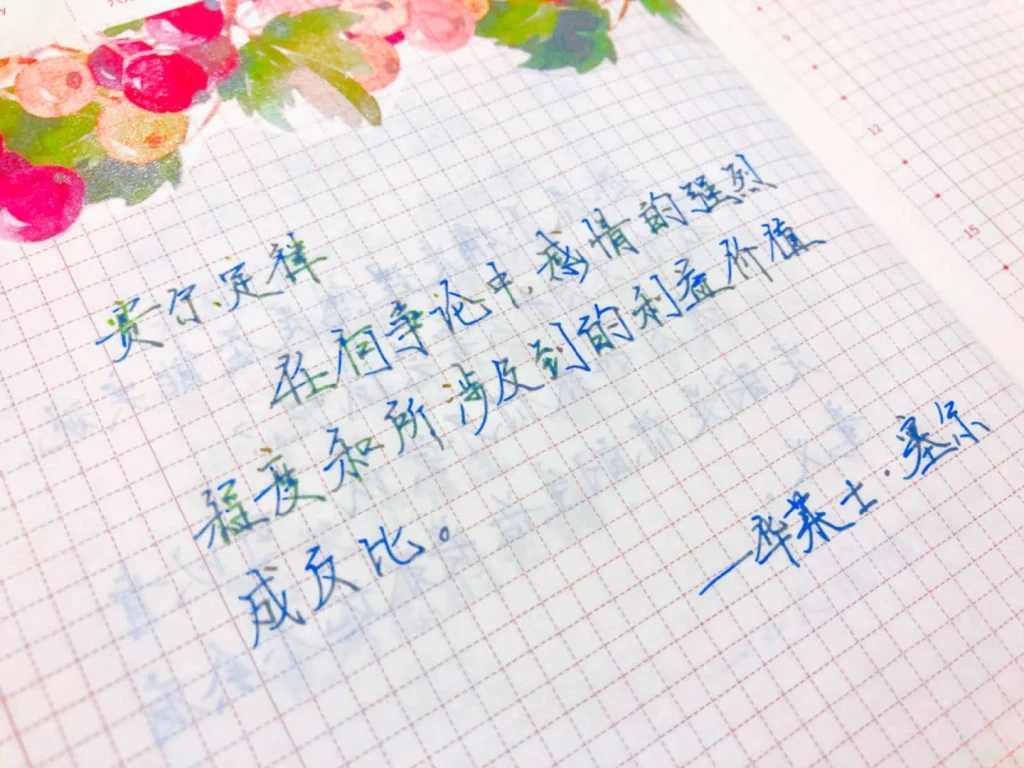 赛尔定律
在何争论中,感情的强烈
程度和所涉及到的利益价值
成反比。
—华莱士·塞尔
12
15